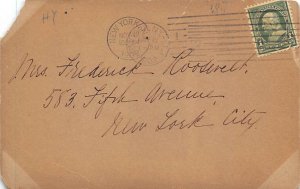 HY
NEW YORK, N.Y.
Mrs. Frederick Roosevelt.
583. Fifth Avenue
New York City